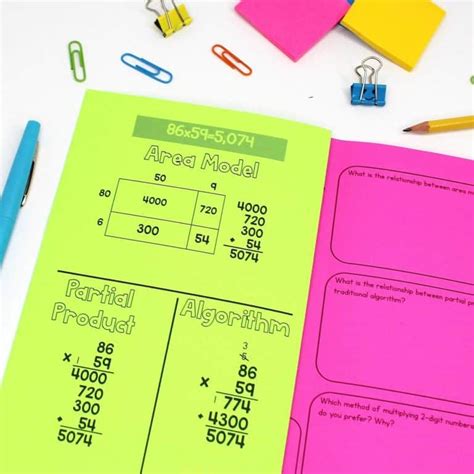 86x59=5,074
Area Model
50 9
80 4000 720
6 300 54
4000
720
300
+ 54
5074
Partial
Product
86
x 59
1
4000
720
300
+ 54
5074
Algorithm
3
5
86
x 59
1
774
+4300
5074
What is the relationship between area
What is the relationship between partial
traditional algorithm?
Which method of multiplying 2-digit numbers
do you prefer? Why?